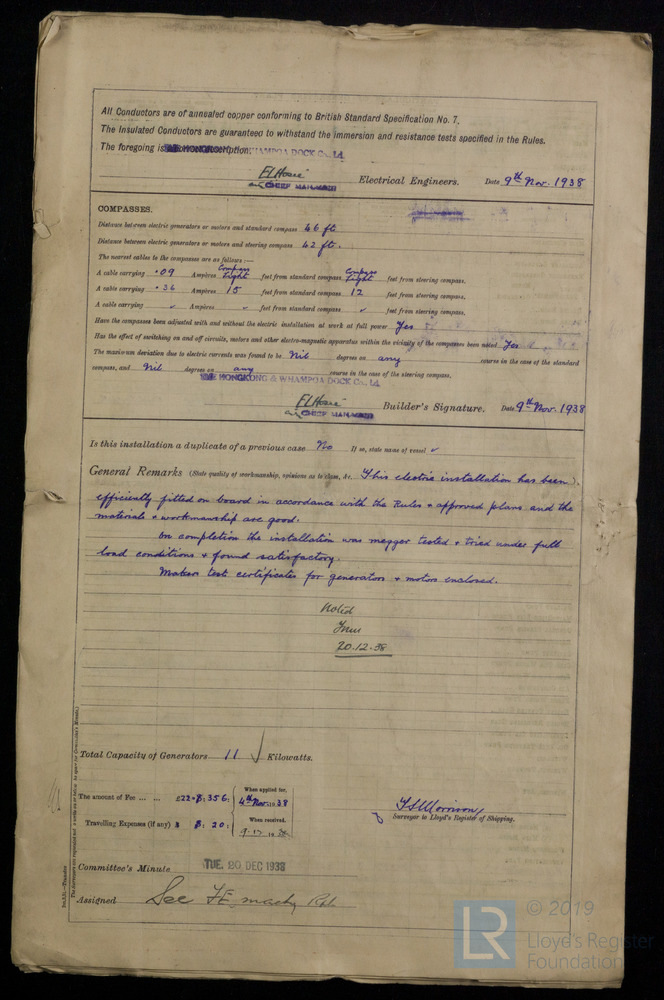 All Conductors are of annealed copper conforming to British Standard Specification No. 7.
The Insulated Conductors are guaranteed to withstand the immersion and resistance tests specified in the Rules.
The foregoing is HONGKONG WHAMPOA DOCK Co., Ld.
CHIEF MANAGER Electrical Engineers. Date 9th Nov. 1938
COMPASSES.
Distance between electric generators or motors and standard compass 46 ft
Distance between electric generators or motors and steering compass 42 ft.
The nearest cables to the compasses are as follows:—
A cable carrying .09 Ampères Compass Light feet from standard compass Compass Light feet from steering compass.
A cable carrying .36 Ampères 15 feet from standard compass 12 feet from steering compass.
A cable carrying ✓ Ampères ✓ feet from standard compass ✓ feet from steering compass.
Have the compasses been adjusted with and without the electric installation at work at full power Yes
Has the effect of switching on and off circuits, motors and other electro-magnetic apparatus within the vicinity of the compasses been noted Yes
The maximum deviation due to electric currents was found to be Nil degrees on any course in the case of the standard
compass, and Nil degrees on any course in the case of the steering compass.
THE HONGKONG & WHAMPOA DOCK Co., Ld.
CHIEF MANAGER Builder's Signature. Date 9th Nov. 1938
Is this installation a duplicate of a previous case No If so, state name of vessel ✓
General Remarks (State quality of workmanship, opinions as to class, &c. This electric installation has been
efficiently fitted on board in accordance with the Rules + approved plans and the
materials + workmanship are good.
On completion the installation was megger tested + tried under full
load conditions + found satisfactory.
Makers test certificates for generators + motors enclosed.
Noted
20.12.38
Total Capacity of Generators 11 ✓ Kilowatts.
The amount of Fee ... ... £22 = $: 356: When applied for, 4th Nov. 1938
Travelling Expenses (if any) £ $: 20: When received,
Surveyor to Lloyd's Register of Shipping.
Committee's Minute TUE. 20 DEC 1938
Assigned See F.E. machy Rpt
© 2019
LR Lloyd's Register
Foundation